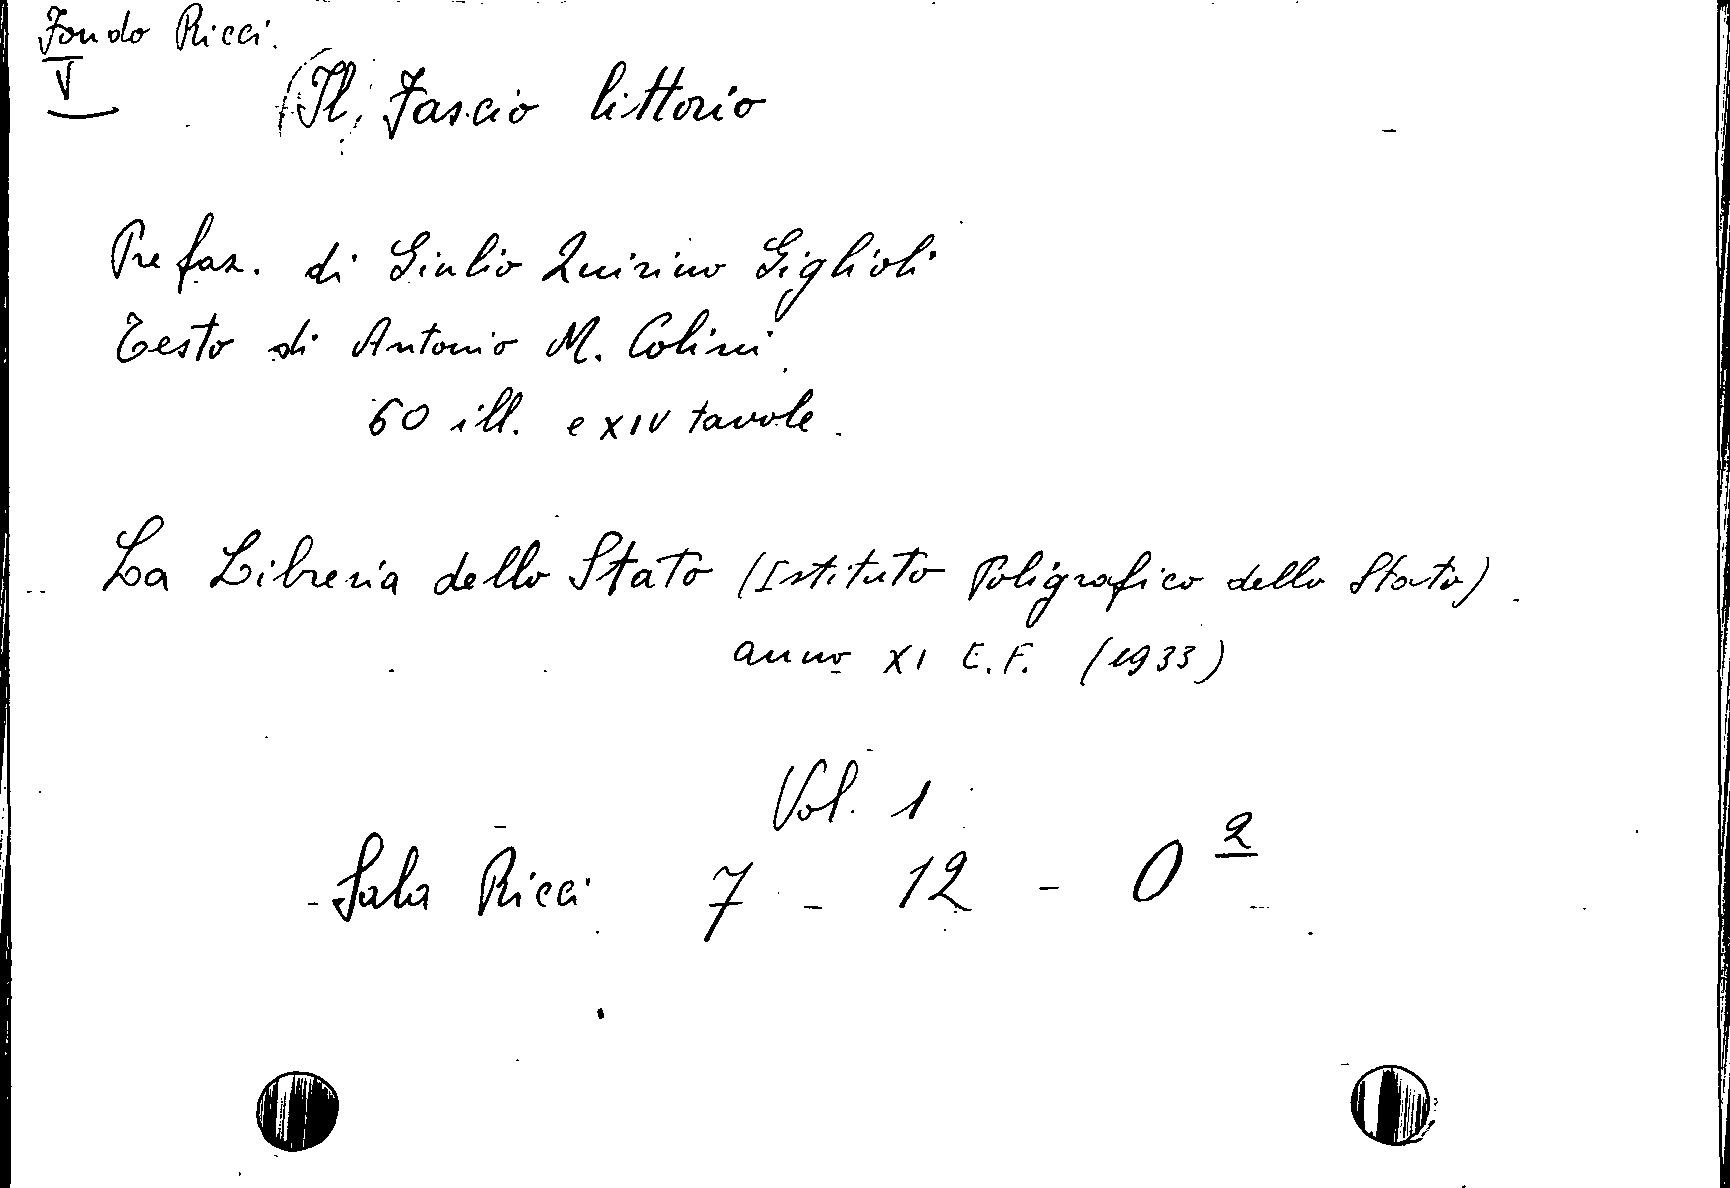 Fondo Ricci.
V
(Il) Fascio littorio
Prefaz. di Giulio Quirino Giglioli
Testo di Antonio M. Colini
60 ill. e XIV tavole.
La Libreria dello Stato (Istituto Poligrafico dello Stato)
anno XI E.F. (1933)
Vol. 1
Sala Ricci 7 - 12 - 0 2